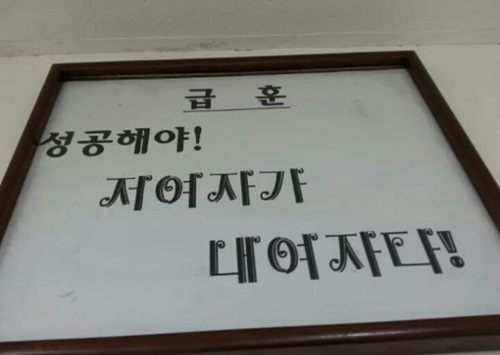 급 훈
성공해야!
저여자가
내여자다!